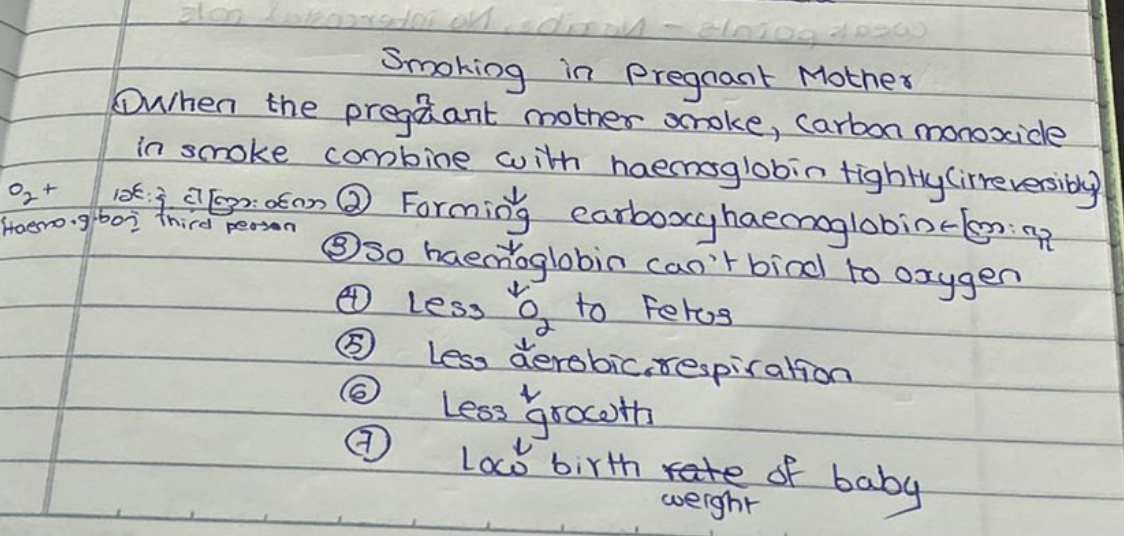 Smoking in Pregnant Mother
① When the pregnant mother smoke, carbon monoxide
in smoke combine with haemoglobin tightly (irreversibly)
O₂ +
② Forming carboxyhaemoglobin ←
Haemo.g'bon third person
③ So haemoglobin can't bind to oxygen
↓
④ Less O₂ to Fetus
↓
⑤ Less aerobic respiration
↓
⑥ Less growth
↓
⑦ Low birth ~~rate~~ of baby
weight